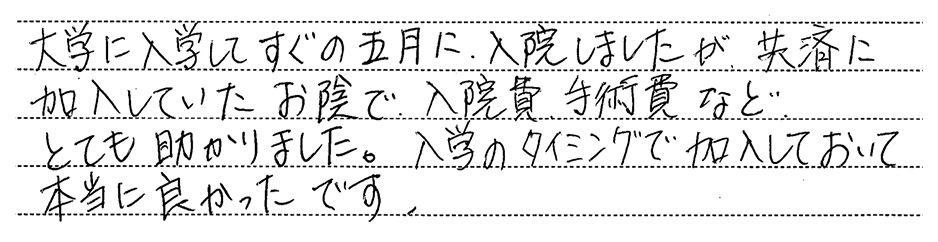 大学に入学してすぐの五月に、入院しましたが、共済に
加入していたお陰で、入院費、手術費など、
とても助かりました。入学のタイミングで加入しておいて
本当に良かったです、